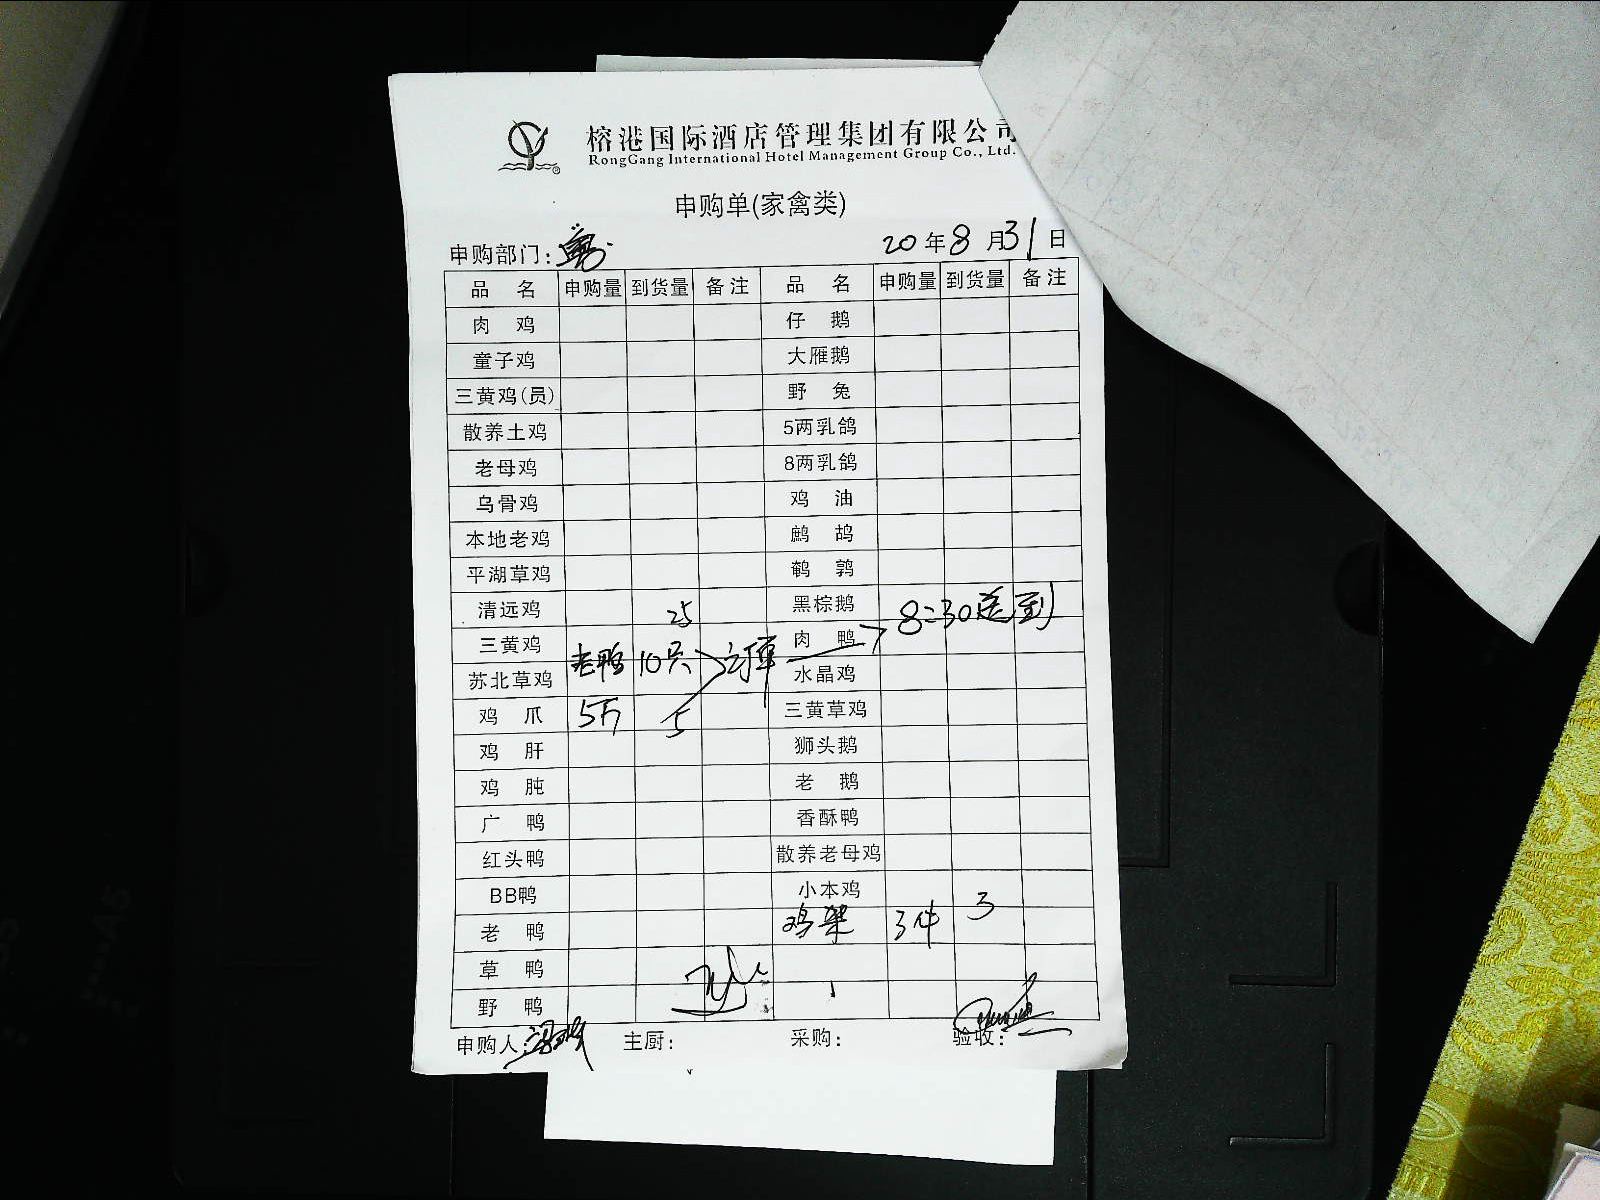 榕港国际酒店管理集团有限公司
RongGang International Hotel Management Group Co., Ltd.
申购单(家禽类)
申购部门:
20 年 8 月 31 日
品 名 申购量 到货量 备注 品 名 申购量 到货量 备注
肉 鸡 仔 鹅
童子鸡 大雁鹅
三黄鸡(员) 野 兔
散养土鸡 5两乳鸽
老母鸡 8两乳鸽
乌骨鸡 鸡 油
本地老鸡 鹧 鸪
平湖草鸡 鹌 鹑
清远鸡 25 黑棕鹅 8:30送到
三黄鸡 老鸭 10只 肉 鸭
苏北草鸡 水晶鸡
鸡 爪 5斤 5 三黄草鸡
鸡 肝 狮头鹅
鸡 肫 老 鹅
广 鸭 香酥鸭
红头鸭 散养老母鸡
BB鸭 小本鸡
老 鸭 鸡架 3件 3
草 鸭
野 鸭
申购人: 主厨: 采购: 验收: